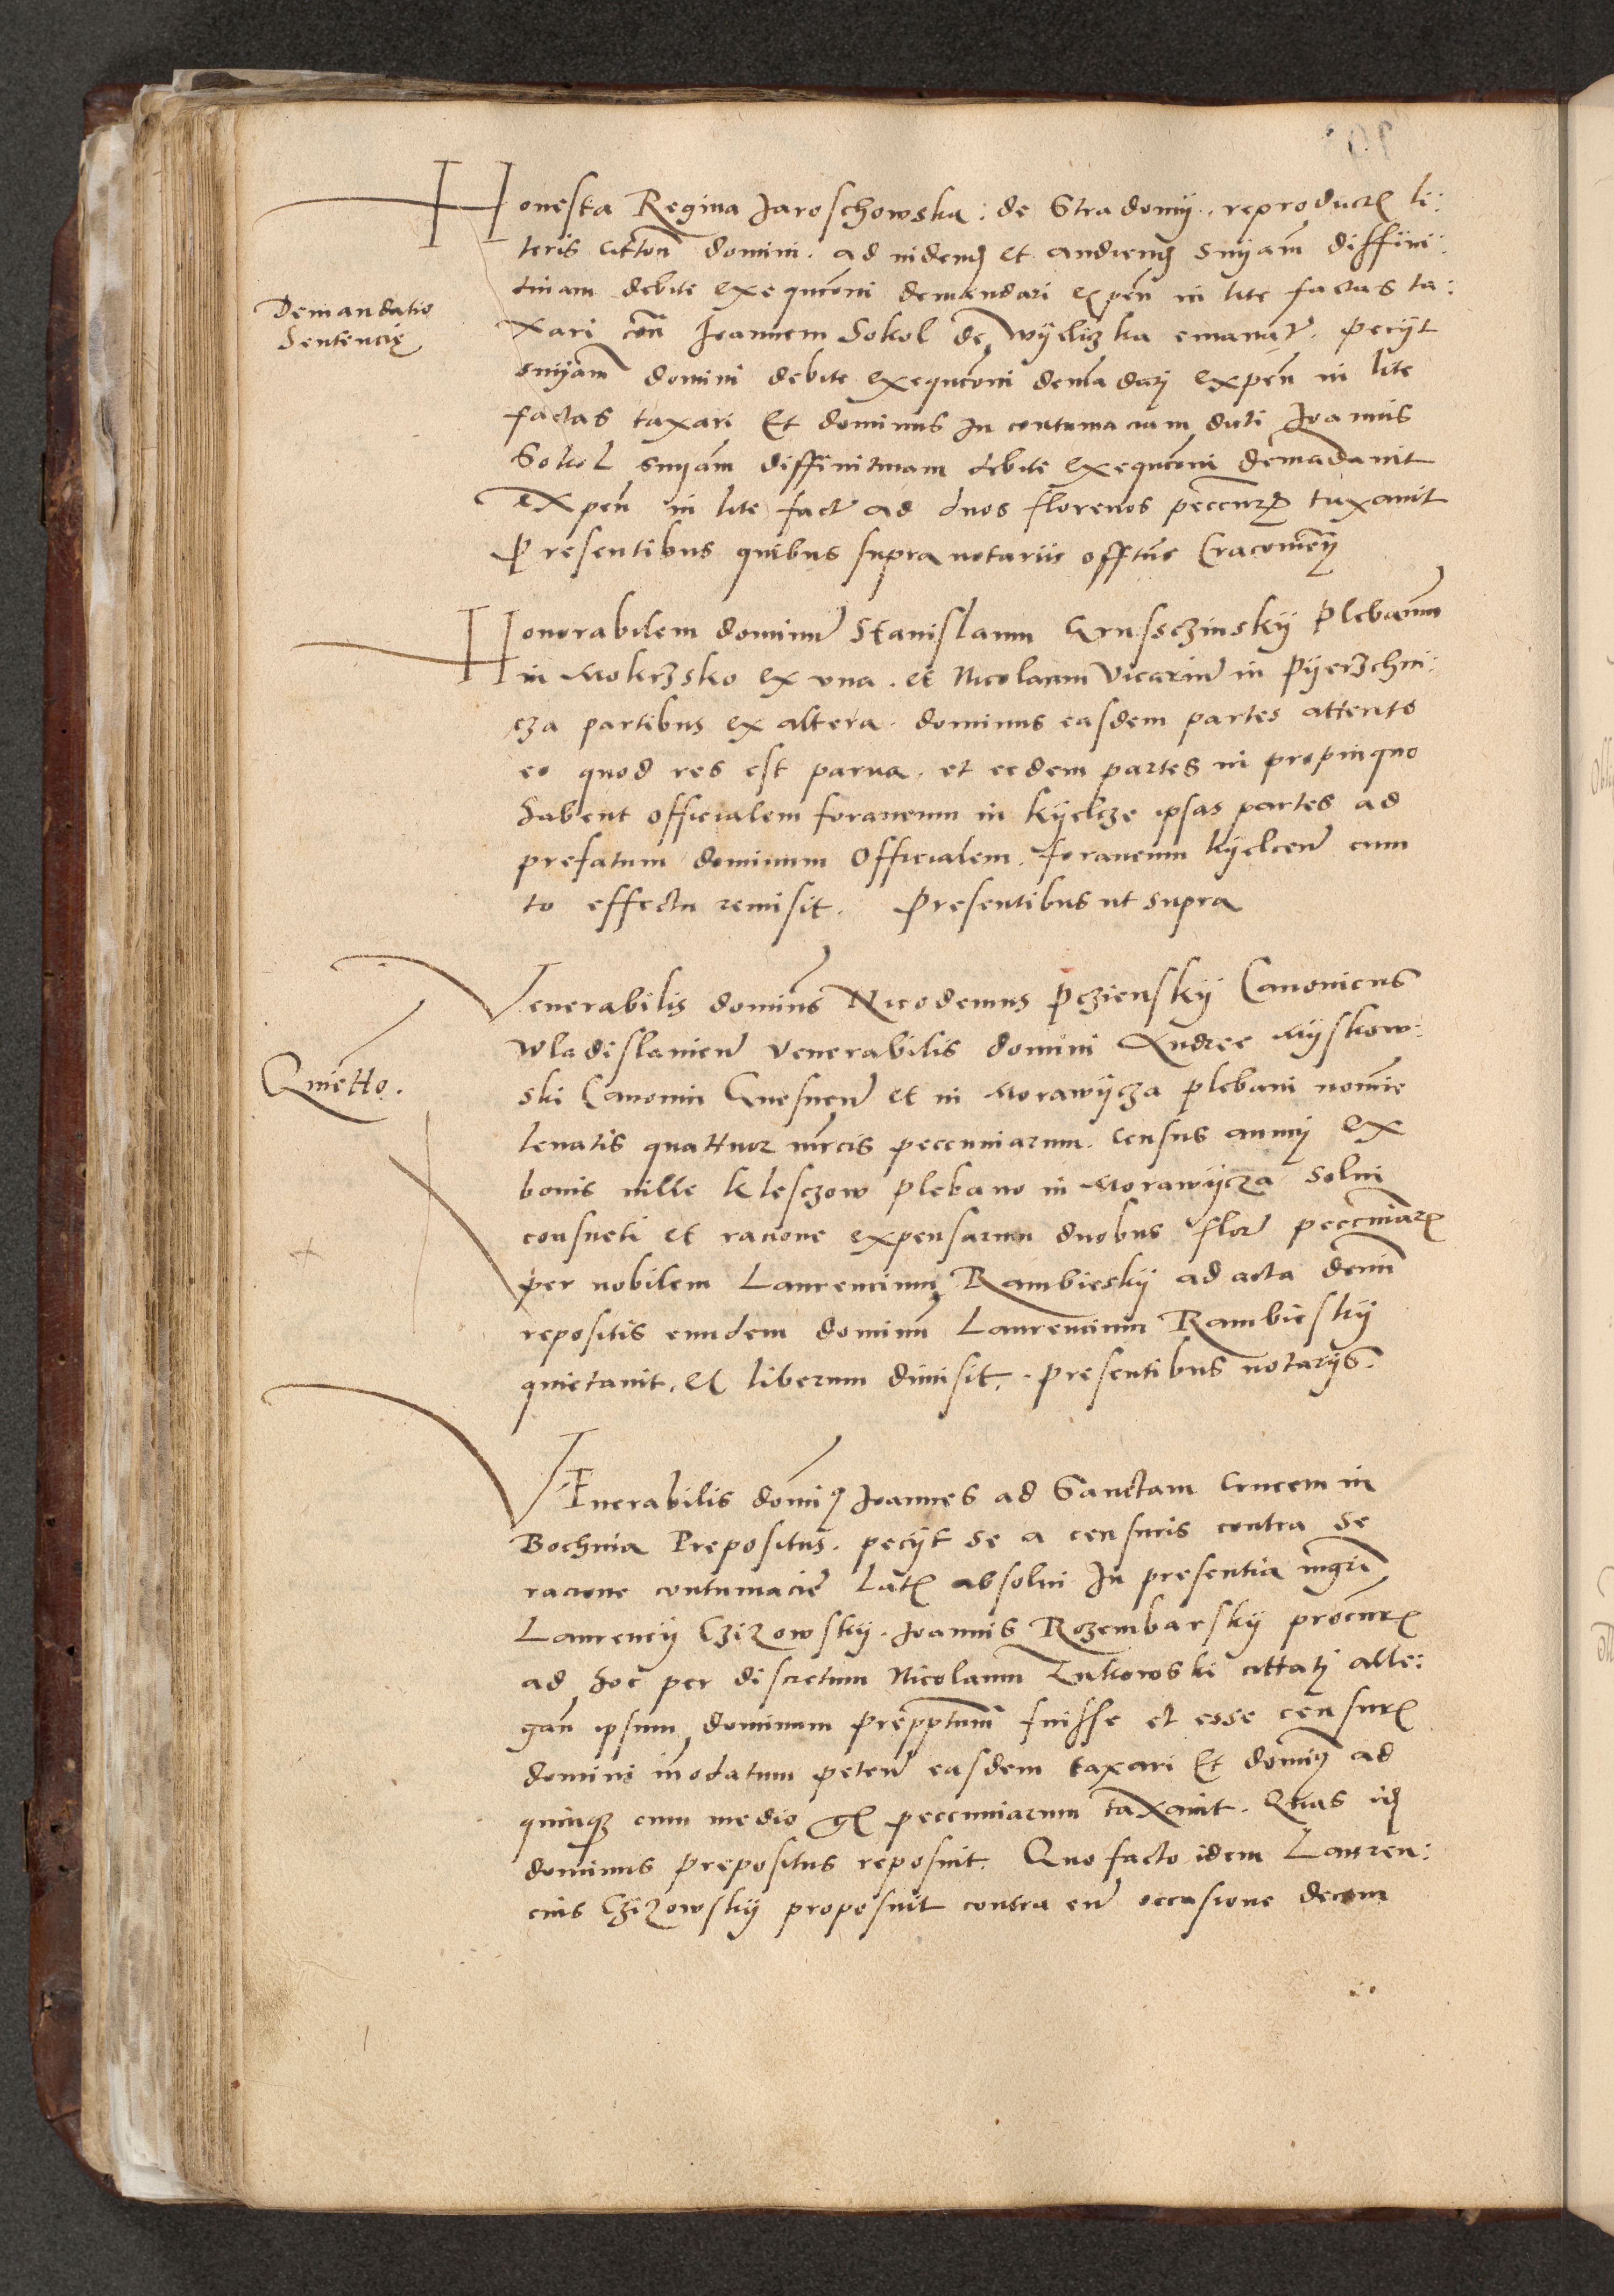 Honesta Regina Jaroschowska: de Stradomy. reproductis li:
teris citton domini. ad videnđ et audienđ sniam diffini:
tivam debite exequcioni demandari expen in lite factas ta:
Demandatio
Sentencie
xari con Joannem Sokol de Wyeliczka emanat. peciit
sniam domini debite exequcioni demadari expen in lite
factas taxari Et dominus in contumaciam dicti Joannis
Sokol sniam diffinitivam debite exequcioni demadavit
Expen in lite fact ad duos florenos peccur taxavit
Presentibus quibus supra notariis offtus Cracovien
Honorabilem dominu Stanislaum Grussczinsky Plebanum
in Mokrzsko ex una. et Nicolaum Vicariu in Pyerzchni:
cza partibus ex altera. dominus easdem partes attento
eo quod res est parva. et eedem partes in propinquo
habent officialem foraneum in Kyelcze ipsas partes ad
prefatum dominum Officialem foraneum Kyelcen cum
to effectu remisit. Presentibus ut supra
Venerabilis dominus Nicodemus Pcziensky Canonicus
Wladislavien Venerabilis domini Andree Myskow:
Quietto.
ski Canonici Gnesnen et in Morawycza plebani nomie
levatis quattuor mrcis pecuniarum. census annui ex
bonis ville Klesczow plebano in Morawycza solvi
consueti et racione expensarum duobus flor peccuniar
per nobilem Laurencium Rambiesky ad acta domi
repositis eundem dominu Laurencium Rambiesky
quietavit. et liberum dimisit. presentibus notariis.
VEnerabilis domi9 Joannes ad Sanctam Crucem in
Bochnia Prepositus. peciit se a censuris contra se
racione contumacie lat absolvi In presentia mgri
Laurencii Czizowsky. Joannis Rozembarsky procur
ad hoc per discretum Nicolaum Zukowski cittati alle:
gan ipsum dominum prepptum fuisse et esse censur
domini inodatum peten easdem taxari Et domi9 ad
quinq cum medio gs peccuniarum taxavit. Quas id
dominus prepositus reposuit. Quo facto idem Lauren:
cius Czizowsky proposuit contra eu occasione decem